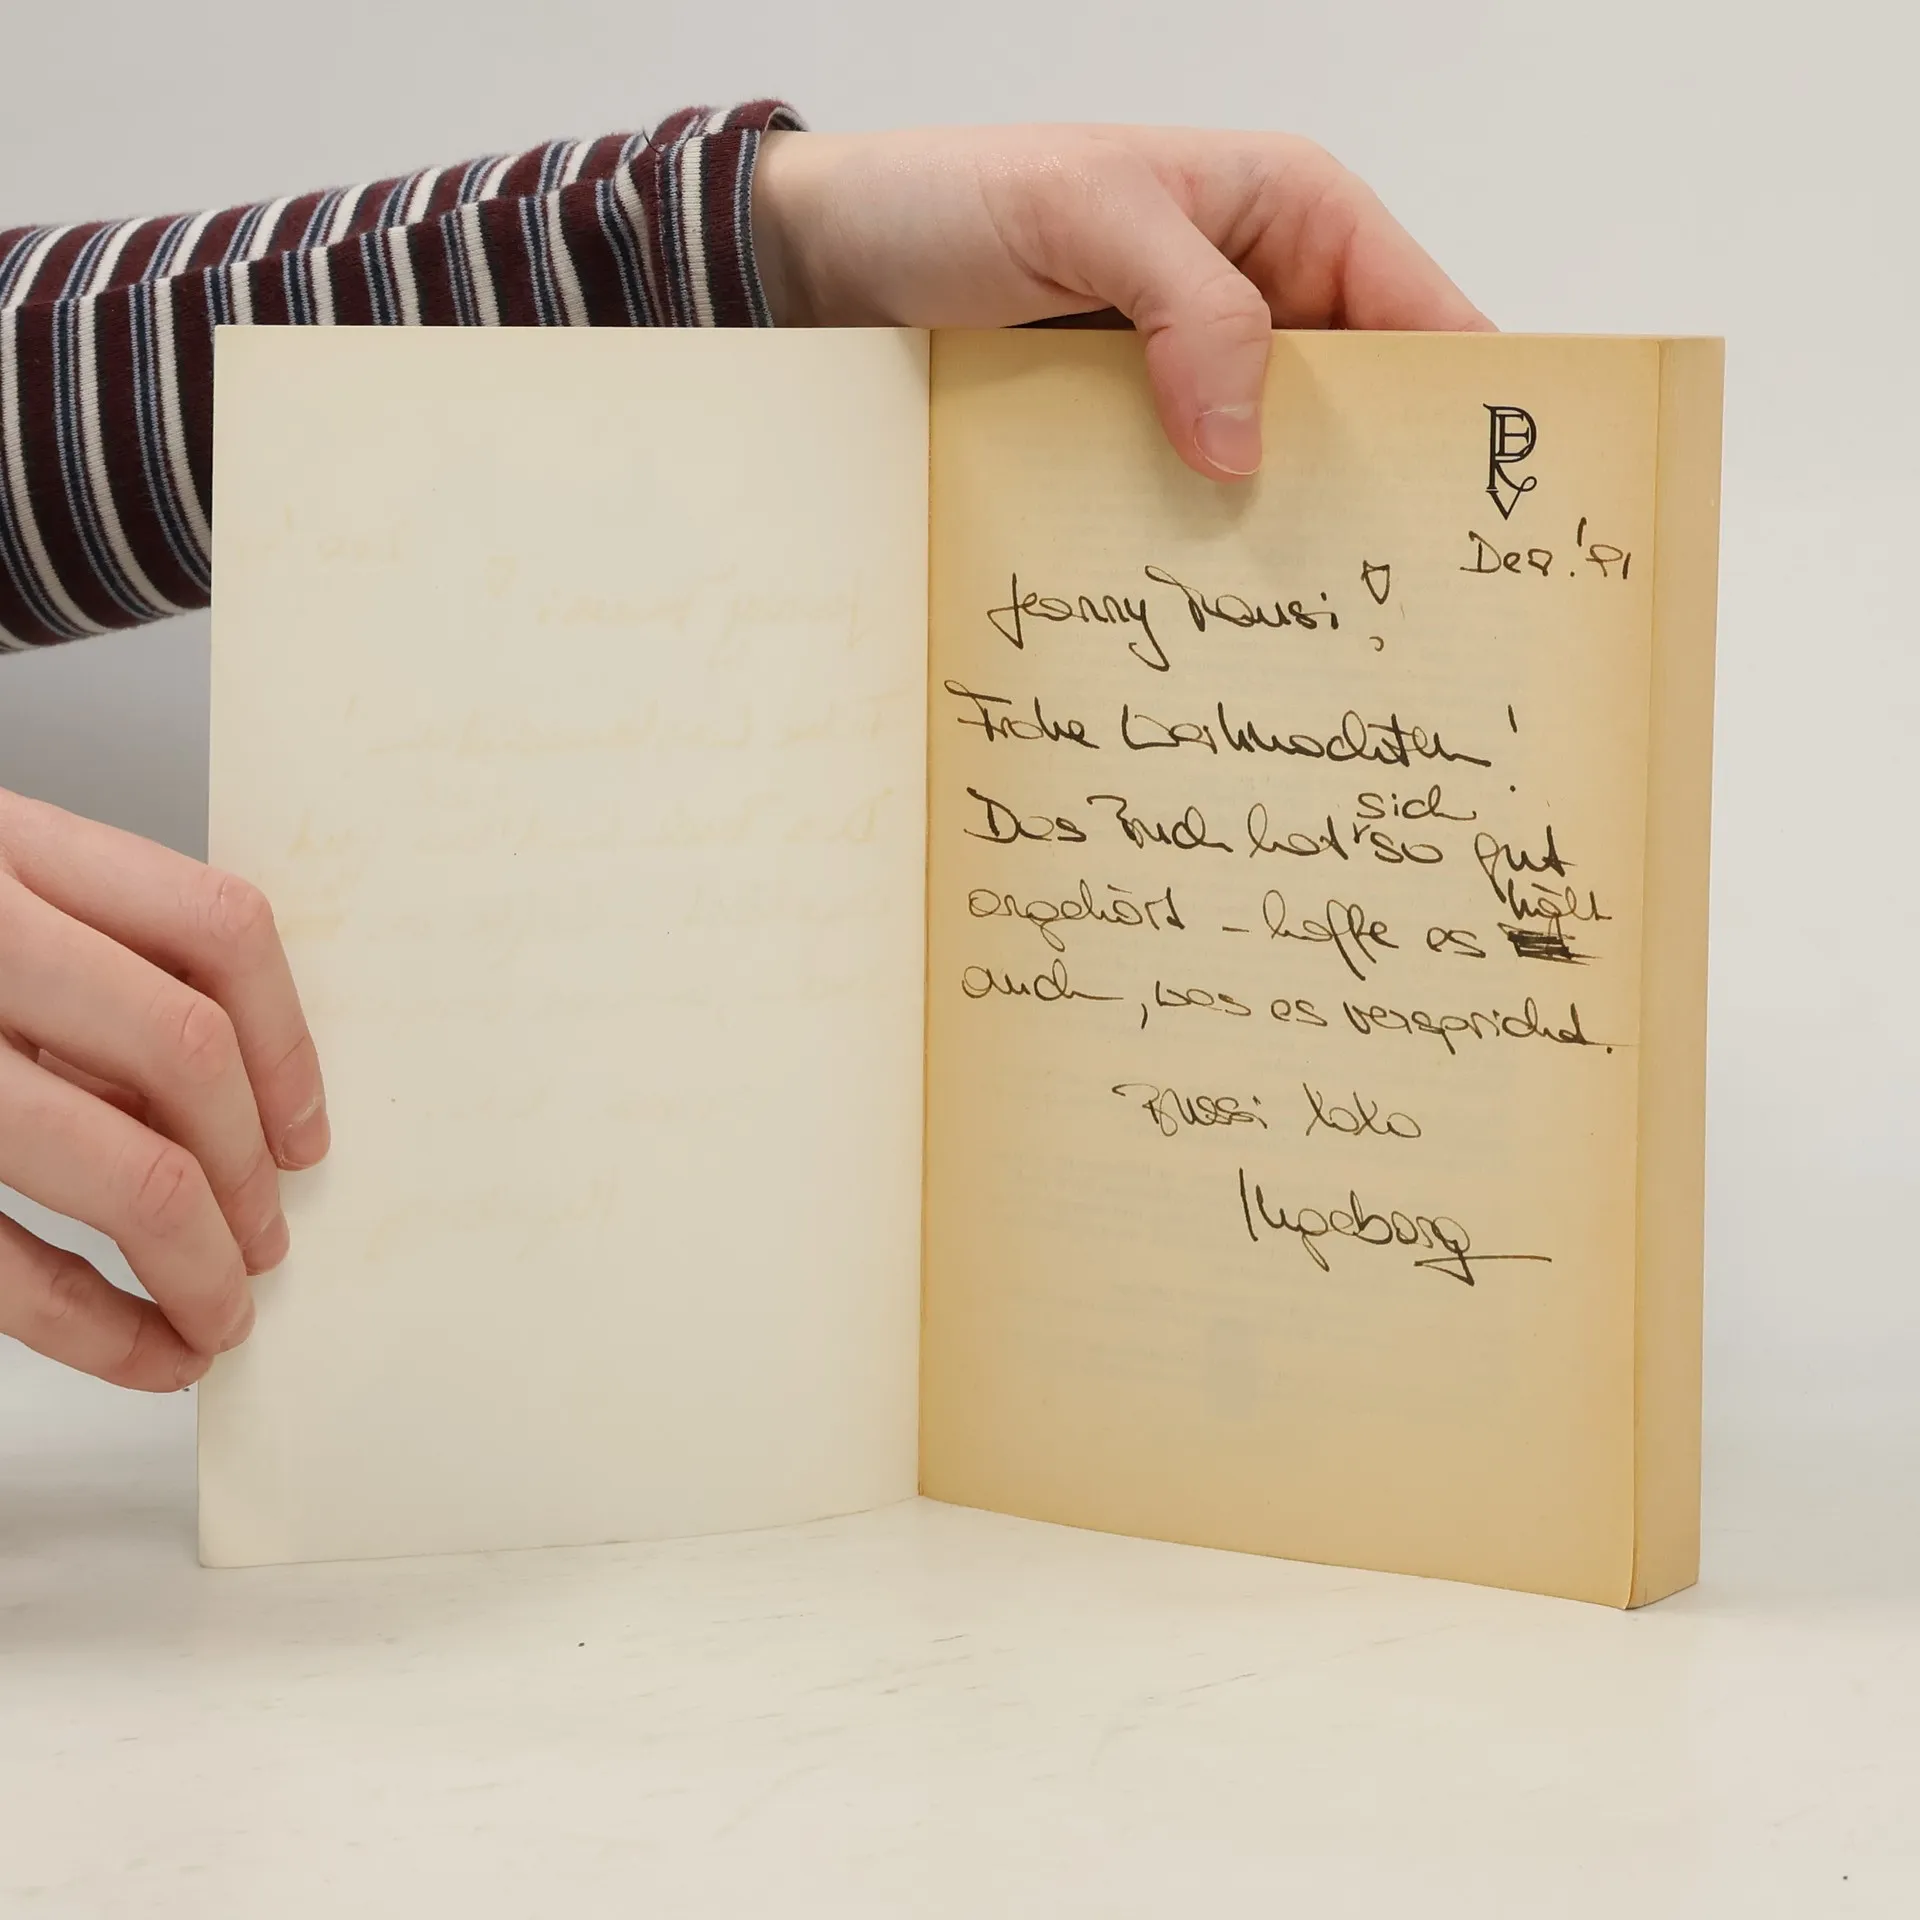 Dez. '91
Jeanny Mausi!
Frohe Weihnachten!
Das Buch hat sich so gut
angehört – hoffe es hält
auch, was es verspricht.
Bussi XoXo
Ingeborg